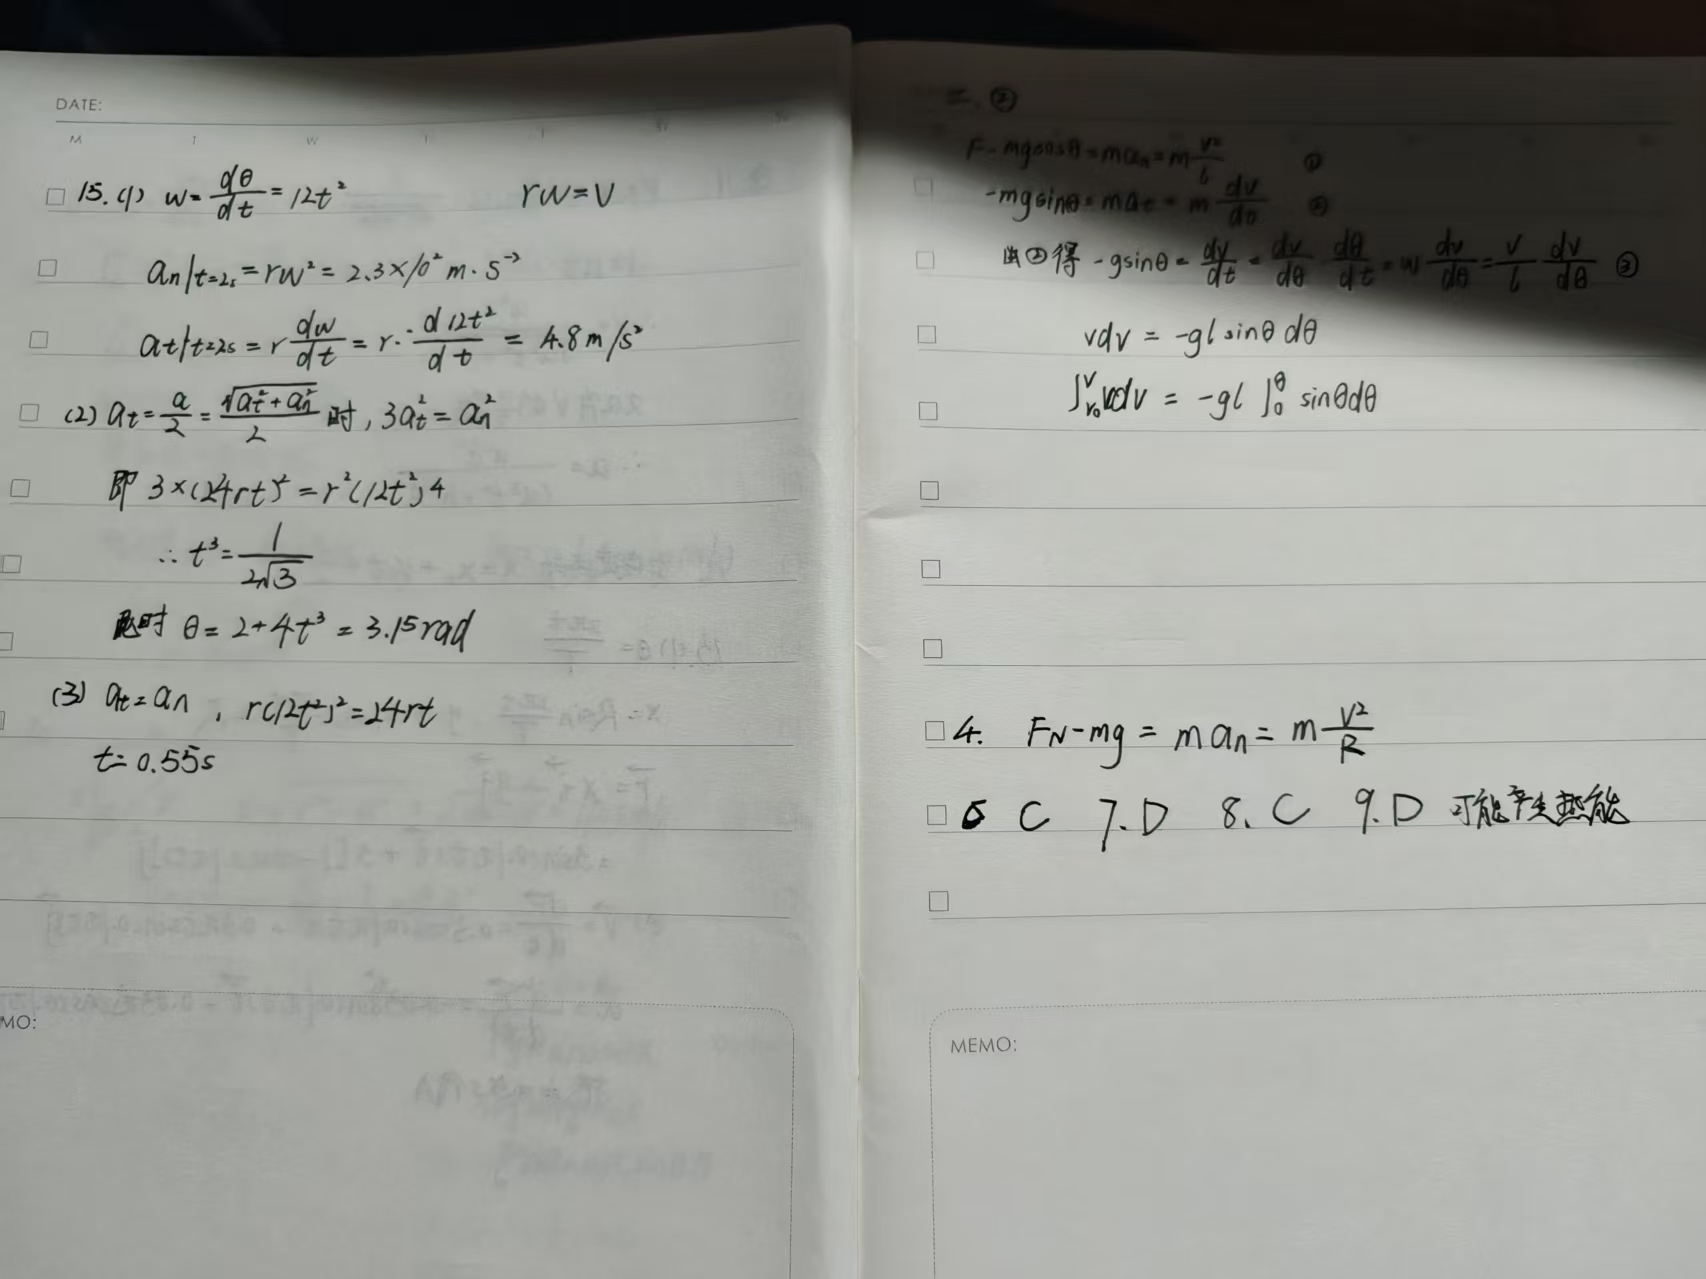 DATE:
M T W T
15.(1) w=dθ/dt=12t² rw=V
an|t=2s=rw²=2.3×10²m·s⁻²
at|t=2s=r dw/dt=r·d12t²/dt=4.8m/s²
(2) at=a/2=√(at²+an²)/2时,3at²=an²
即 3×(24rt)²=r²(12t²)4
∴t³=1/2√3
此时 θ=2+4t³=3.15rad
(3) at=an, r(12t²)²=24rt
t=0.55s
MO:
二.②
F-mgcosθ=man=m v²/l ①
-mgsinθ=mat=m dv/dt ②
由②得 -gsinθ=dv/dt=dv/dθ dθ/dt=w dv/dθ=v/l dv/dθ ③
vdv=-glsinθdθ
∫v₀^v vdv=-gl∫0^θ sinθdθ
4. FN-mg=man=m v²/R
6 C 7.D 8.C 9.D 可能产生热能
MEMO: